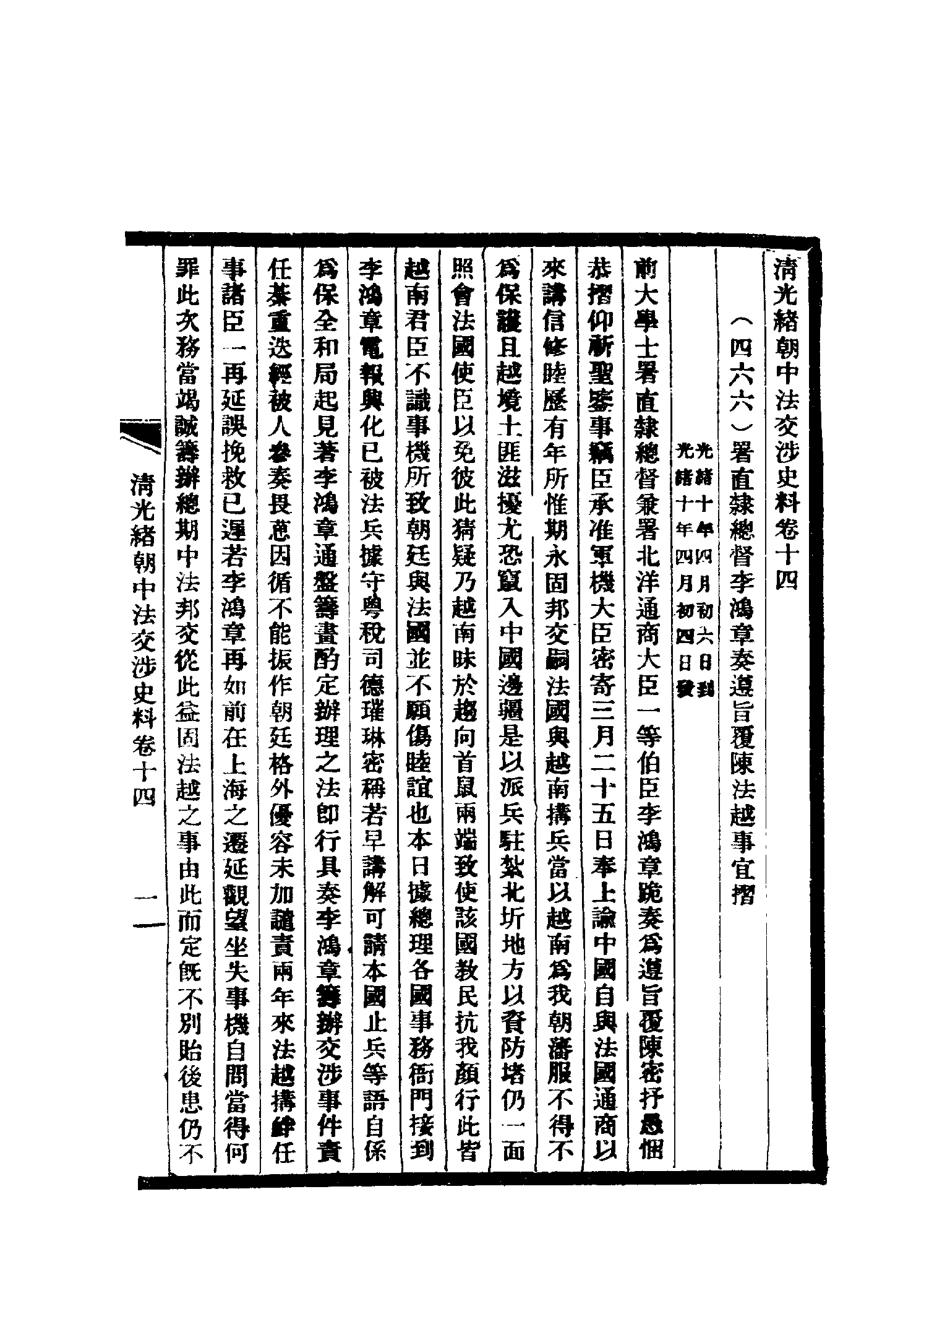 清光緒朝中法交涉史料卷十四
（四六六）署直隸總督李鴻章奏遵旨覆陳法越事宜摺
光緒十年四月初六日到
光緒十年四月初四日發
前大學士署直隸總督兼署北洋通商大臣一等伯臣李鴻章跪奏爲遵旨覆陳密抒愚悃
恭摺仰祈聖鑒事竊臣承准軍機大臣密寄三月二十五日奉上諭中國自與法國通商以
來講信修睦歷有年所惟期永固邦交嗣法國與越南搆兵當以越南爲我朝藩服不得不
爲保護且越境土匪滋擾尤恐竄入中國邊疆是以派兵駐紮北圻地方以資防堵仍一面
照會法國使臣以免彼此猜疑乃越南昧於趨向首鼠兩端致使該國教民抗我顏行此皆
越南君臣不識事機所致朝廷與法國並不願傷睦誼也本日據總理各國事務衙門接到
李鴻章電報興化已被法兵據守粵稅司德璀琳密稱若早講解可請本國止兵等語自係
爲保全和局起見著李鴻章通盤籌畫酌定辦理之法卽行具奏李鴻章籌辦交涉事件責
任綦重迭經被人參奏畏葸因循不能振作朝廷格外優容未加譴責兩年來法越搆釁任
事諸臣一再延誤挽救已遲若李鴻章再如前在上海之遷延觀望坐失事機自問當得何
罪此次務當竭誠籌辦總期中法邦交從此益固法越之事由此而定旣不別貽後患仍不
清光緒朝中法交涉史料卷十四
一